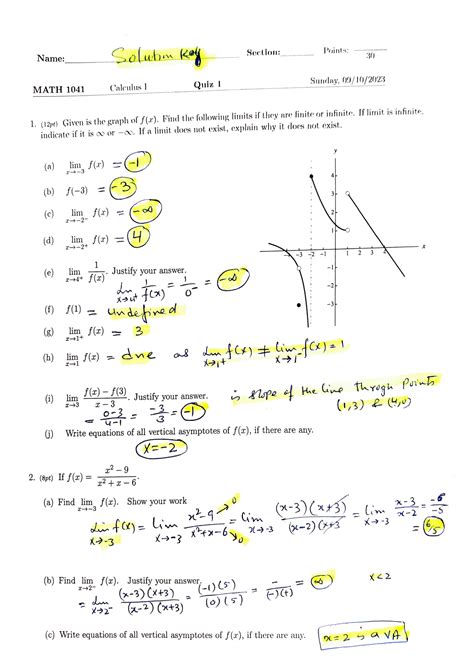 Name: Solution Key Section: Points: 30
MATH 1041 Calculus I Quiz 1 Sunday, 09/10/2023
1. (12pt) Given is the graph of f(x). Find the following limits if they are finite or infinite. If limit is infinite,
indicate if it is ∞ or −∞. If a limit does not exist, explain why it does not exist.
(a) lim x→−3 f(x) = -1
(b) f(−3) = -3
(c) lim x→−2⁻ f(x) = -∞
(d) lim x→−2⁺ f(x) = 4
(e) lim x→4⁺ 1/f(x). Justify your answer.
lim x→4⁺ 1/f(x) = 1/0⁻ = -∞
(f) f(1) = undefined
(g) lim x→1⁺ f(x) = 3
(h) lim x→1 f(x) = dne as lim x→1⁺ f(x) ≠ lim x→1⁻ f(x) = 1
(i) lim x→3 f(x) − f(3) / x − 3. Justify your answer. is slope of the line through points
= 0-3 / 4-1 = -3/3 = -1 (1,3) & (4,0)
(j) Write equations of all vertical asymptotes of f(x), if there are any.
x = -2
y
4
3
2
1
−4 −3 −2 −1 1 2 3 4 x
−1
−2
−3
2. (8pt) If f(x) = x² − 9 / x² + x − 6.
(a) Find lim x→−3 f(x). Show your work
lim f(x) x→-3 = lim x→-3 x²-9 →0 / x²+x-6 →0 = lim x→-3 (x-3)(x+3) / (x-2)(x+3) = lim x→-3 x-3 / x-2 = -6/-5
6/5
(b) Find lim x→2⁻ f(x). Justify your answer.
= lim x→2⁻ (x-3)(x+3) / (x-2)(x+3) = (-1)(5) / (0)(5) = - / (-)(+) = ∞ x<2
(c) Write equations of all vertical asymptotes of f(x), if there are any. x = 2 is a VA